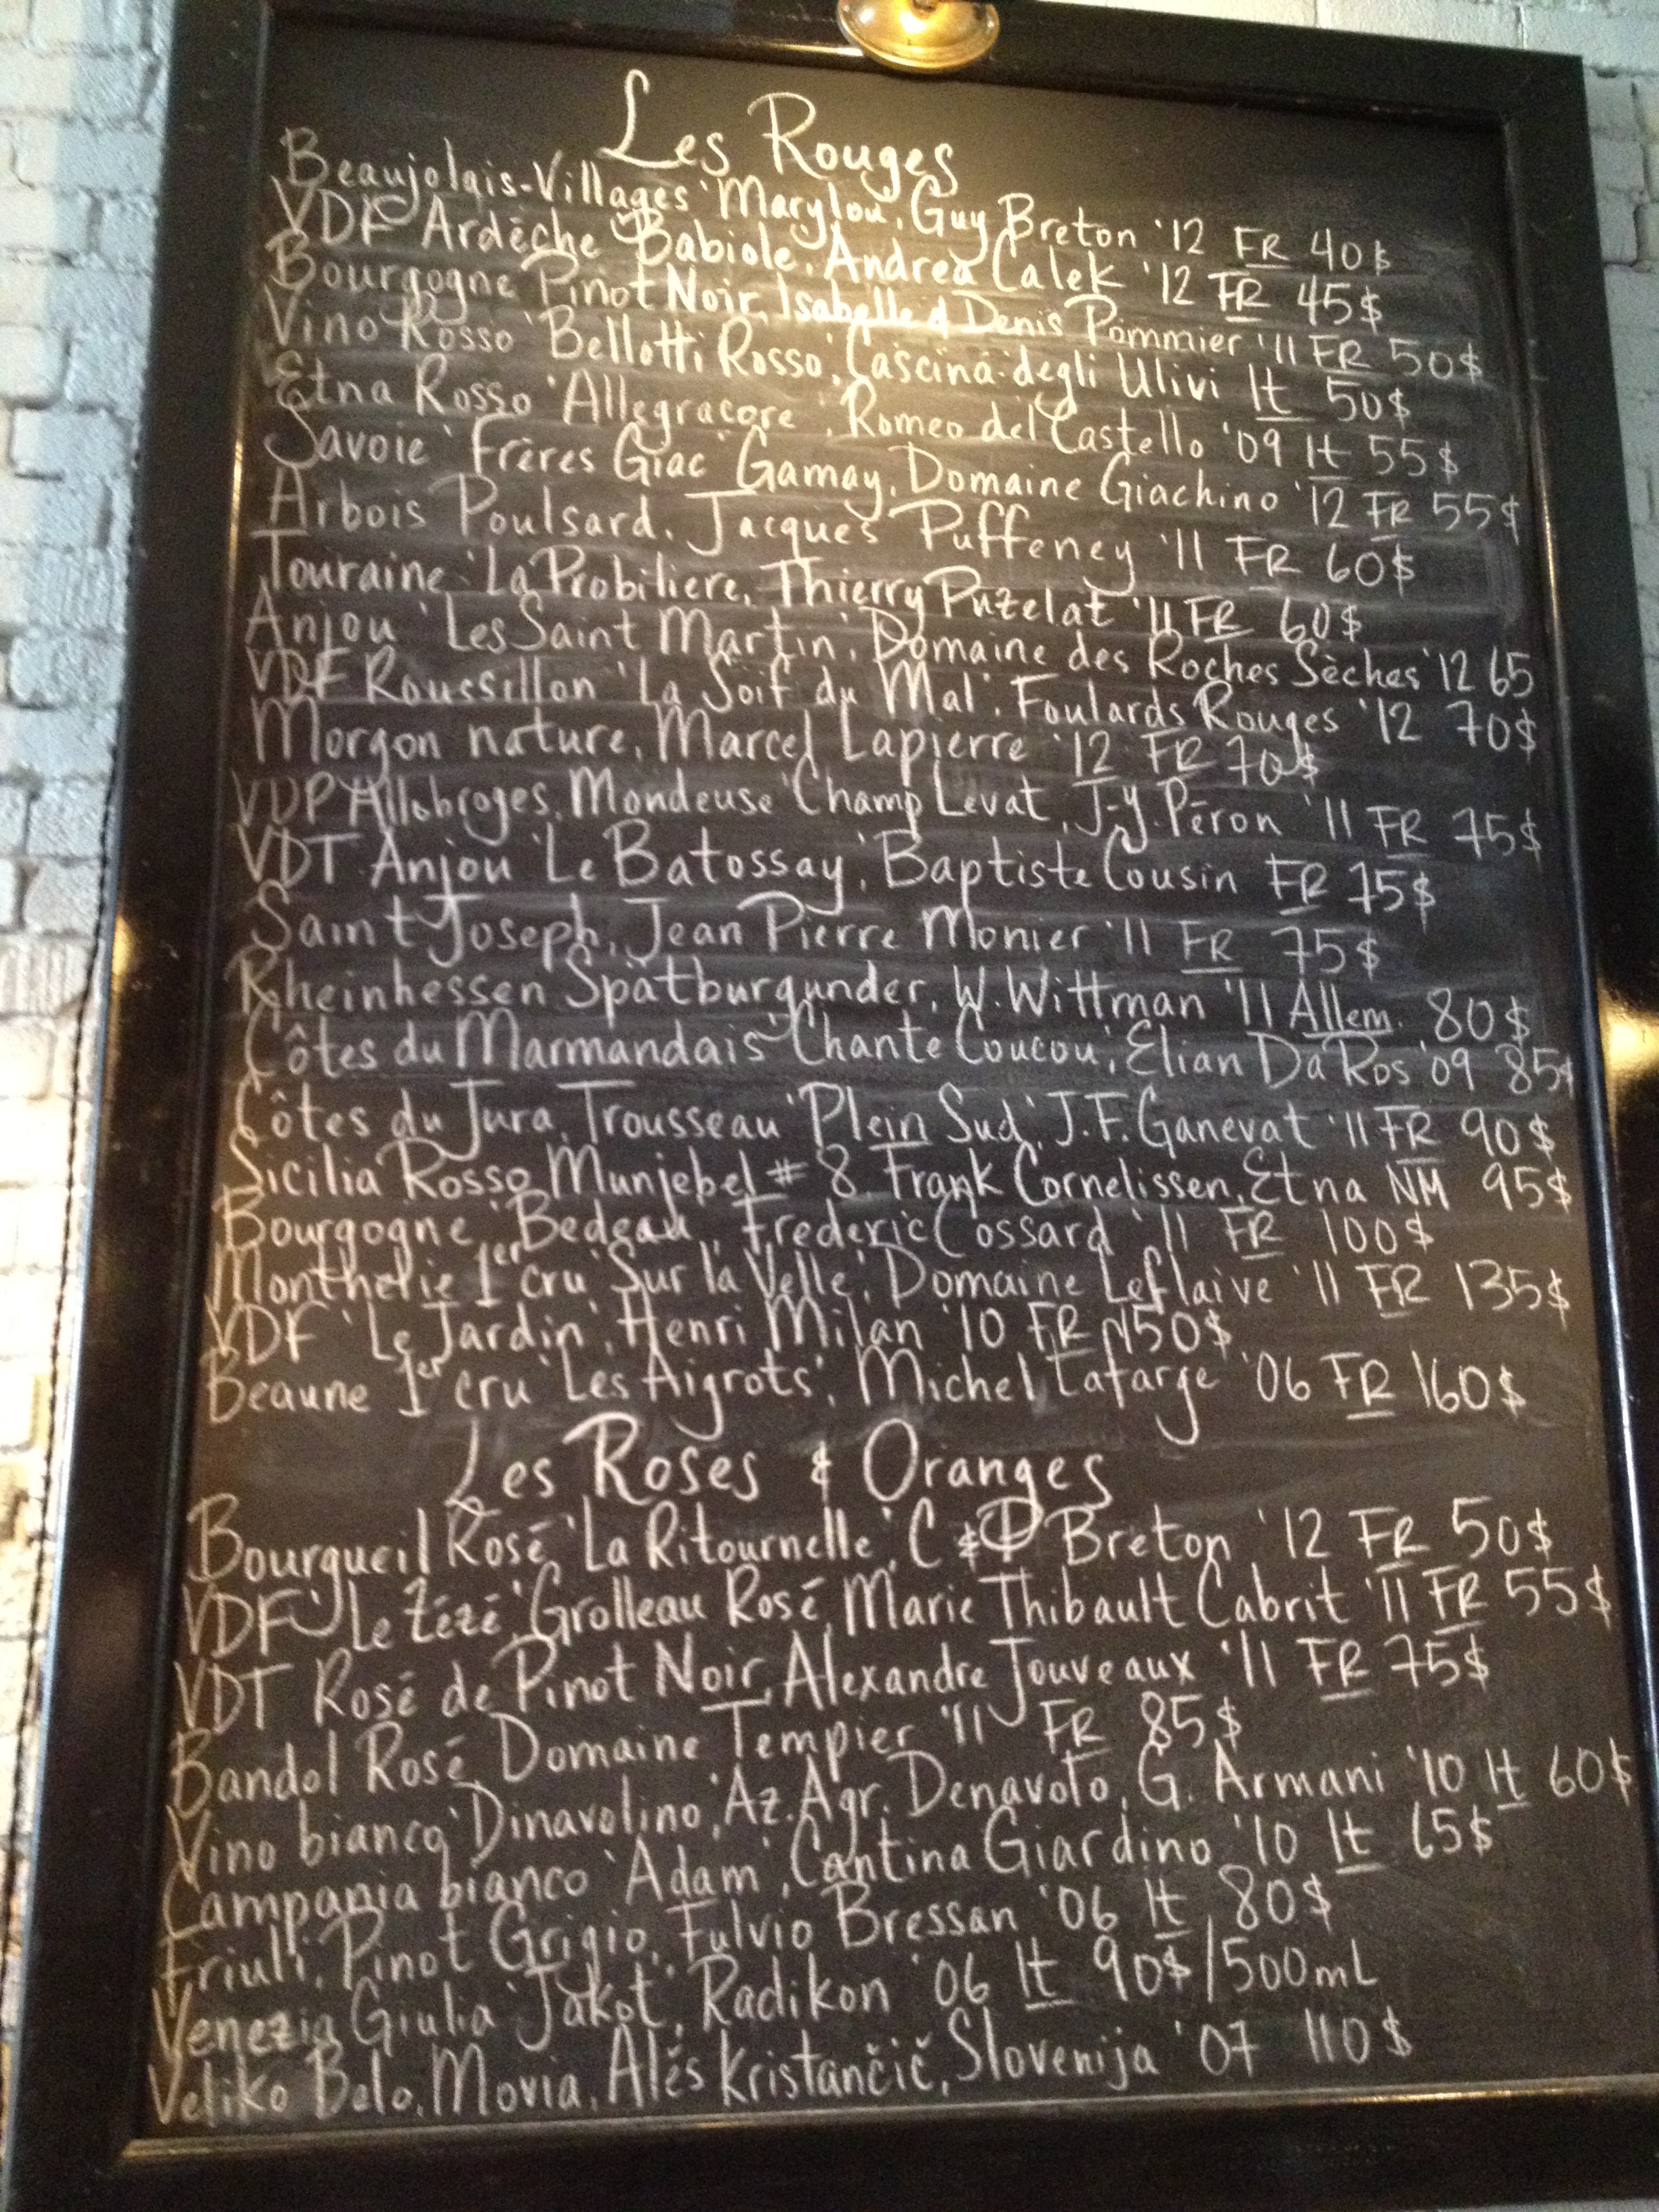 Les Rouges
Beaujolais-Villages 'Marylou', Guy Breton '12 FR 40$
VDF Ardèche 'Babiole', Andrea Calek '12 FR 45$
Bourgogne Pinot Noir, Isabelle & Denis Pommier '11 FR 50$
Vino Rosso 'Bellotti Rosso', Cascina degli Ulivi It 50$
Etna Rosso 'Allegracore', Romeo del Castello '09 It 55$
Savoie 'Frères Giac' Gamay, Domaine Giachino '12 FR 55$
Arbois Poulsard, Jacques Puffeney '11 FR 60$
Touraine 'La Probiliere, Thierry Puzelat '11 FR 60$
Anjou 'Les Saint Martin', Domaine des Roches Sèches '12 65
VDF Roussillon 'La Soif du Mal', Foulards Rouges '12 70$
Morgon nature, Marcel Lapierre '12 FR 70$
VDP Allobroges, Mondeuse 'Champ Levat', J-Y. Péron '11 FR 75$
VDT Anjou 'Le Batossay', Baptiste Cousin FR 75$
Saint Joseph, Jean Pierre Monier '11 FR 75$
Rheinhessen Spätburgunder, W. Wittman '11 Allem. 80$
Côtes du Marmandais 'Chante Coucou', Elian Da Ros '09 85$
Côtes du Jura, Trousseau 'Plein Sud', J.F. Ganevat '11 FR 90$
Sicilia Rosso Munjebel #8 Frank Cornelissen, Etna NM 95$
Bourgogne 'Bedeau', Frederic Cossard '11 FR 100$
Monthelie 1er cru 'Sur la Velle', Domaine Leflaive '11 FR 135$
VDF 'Le Jardin', Henri Milan '10 FR 150$
Beaune 1er cru 'Les Aigrots', Michel Lafarge '06 FR 160$
Les Roses & Oranges
Bourgueil Rosé 'La Ritournelle', C & P Breton '12 FR 50$
VDF 'Le Zézé' Grolleau Rosé, Marie Thibault Cabrit '11 FR 55$
VDT Rosé de Pinot Noir, Alexandre Jouveaux '11 FR 75$
Bandol Rosé, Domaine Tempier '11 FR 85$
Vino bianco 'Dinavolino', Az. Agr. Denavolo, G. Armani '10 It 60$
Campania bianco 'Adam', Cantina Giardino '10 It 65$
Friuli, Pinot Grigio, Fulvio Bressan '06 It 80$
Venezia Giulia 'Jakot', Radikon '06 It 90$/500mL
Veliko Belo, Movia, Aleš Kristančič, Slovenija '07 110$